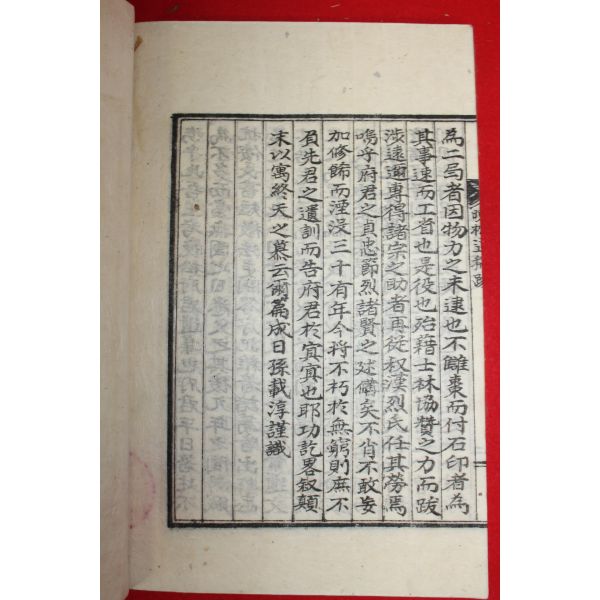 為二局者因物力之未逮也不雕棗而付石印者為
其事速而工省也是役也殆藉士林協贊之力而跋
涉遠邇專得諸宗之助者再從叔漢烈氏任其勞焉
嗚乎府君之貞忠節烈諸賢之述備矣不肖不敢妄
加修餙而湮没三千有年今將不朽於無窮則庶不
負先君之遺訓而告府君於㝠㝠也耶功訖畧叙顛
末以寓終天之慕云爾篇成日孫載淳謹識